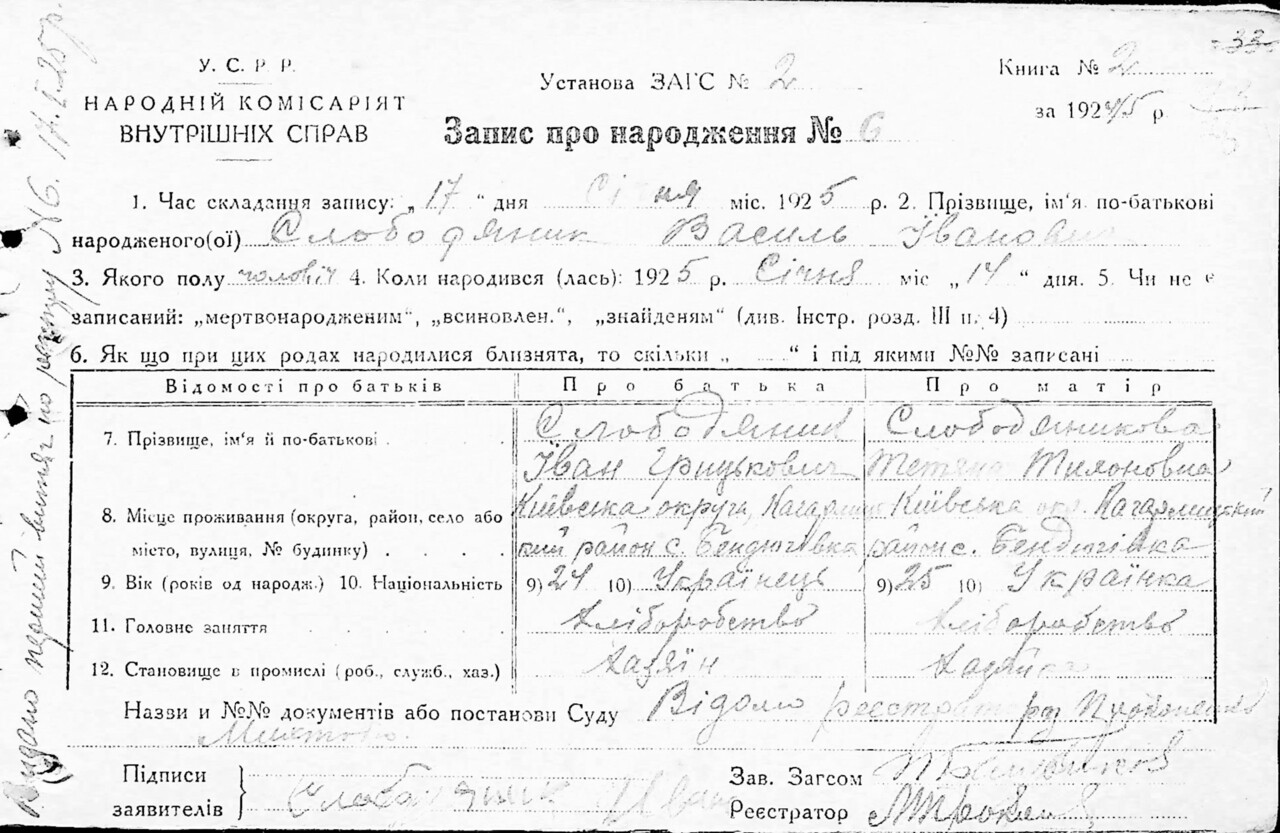 33
У. С. Р. Р.
НАРОДНІЙ КОМІСАРІЯТ
ВНУТРІШНІХ СПРАВ
Установа ЗАГС № 2
Книга № 2
за 1924/5 р.
Запис про народження № 6
1. Час складання запису: „17“ дня Січня міс. 1925 р. 2. Прізвище, ім'я по-батькові
народженого(ої) Слободяник Василь Іванович
3. Якого полу чоловіч 4. Коли народився (лась): 1925 р. Січня міс „14“ дня. 5. Чи не є
записаний: „мертвонародженим“, „всиновлен.“, „знайденям“ (див. Інстр. розд. III п. 4)
6. Як що при цих родах народилися близнята, то скільки „ “ і під якими №№ записані
Відомості про батьків Про батька Про матір
7. Прізвище, ім'я й по-батькові Слободяник Слободяникова
Іван Грицькович Тетяна Тихоновна
8. Місце проживання (округа, район, село або Київська округа, Кагарлиц Київська окр. Кагарлицький
місто, вулиця, № будинку) кий район с. Бендюгівка район с. Бендюгівка
9. Вік (років од народж.) 10. Національність 9) 24 10) Українець 9) 25 10) Українка
11. Головне заняття Хліборобство Хліборобство
12. Становище в промислі (роб., служб., хаз.) Хазяїн Хазяйка
Назви и №№ документів або постанови Суду Відомо реєстратору
Підписи
заявителів Слободяник Іван
Зав. Загсом
Реєстратор
Видано перший витяг по № 6. 17.I.25 р.